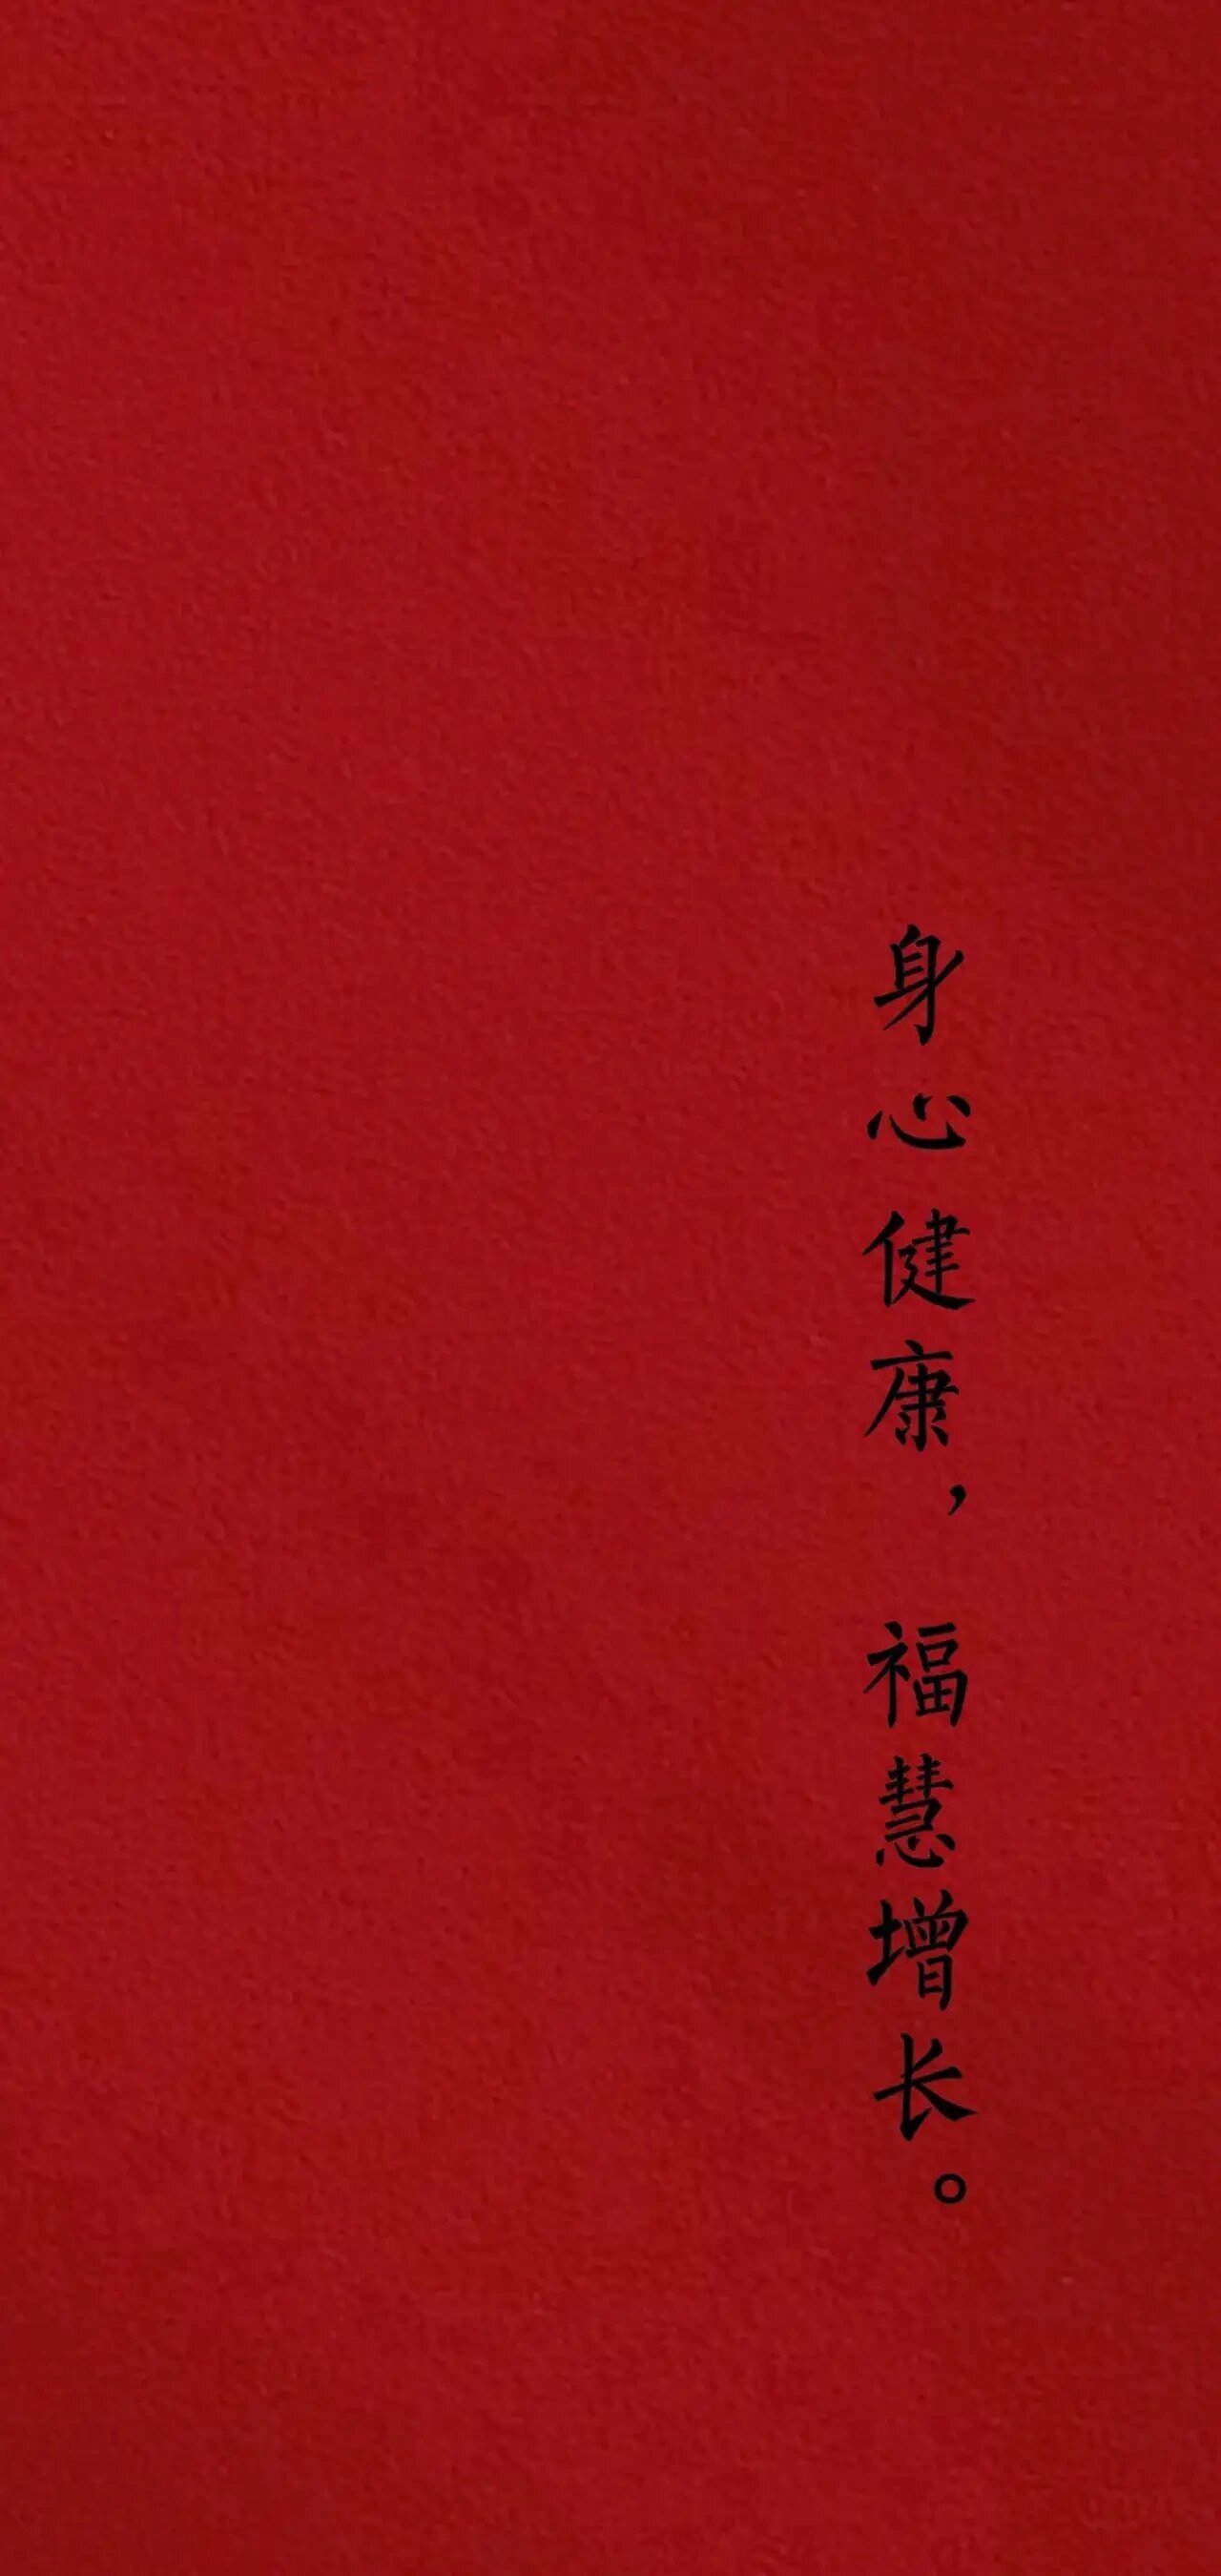 身心健康，福慧增长。